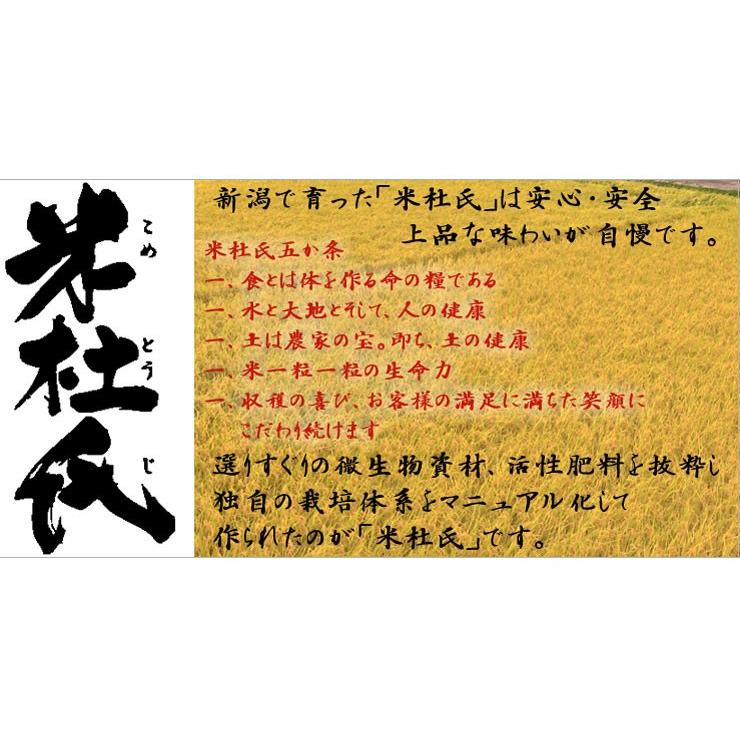 米杜氏
こめ
とう
じ
新潟で育った「米杜氏」は安心・安全
上品な味わいが自慢です。
米杜氏五か条
一、食とは体を作る命の糧である
一、水と大地とそして、人の健康
一、土は農家の宝。即ち、土の健康
一、米一粒一粒の生命力
一、収穫の喜び、お客様の満足に満ちた笑顔に
こだわり続けます
選りすぐりの微生物資材、活性肥料を抜粋し
独自の栽培体系をマニュアル化して
作られたのが「米杜氏」です。